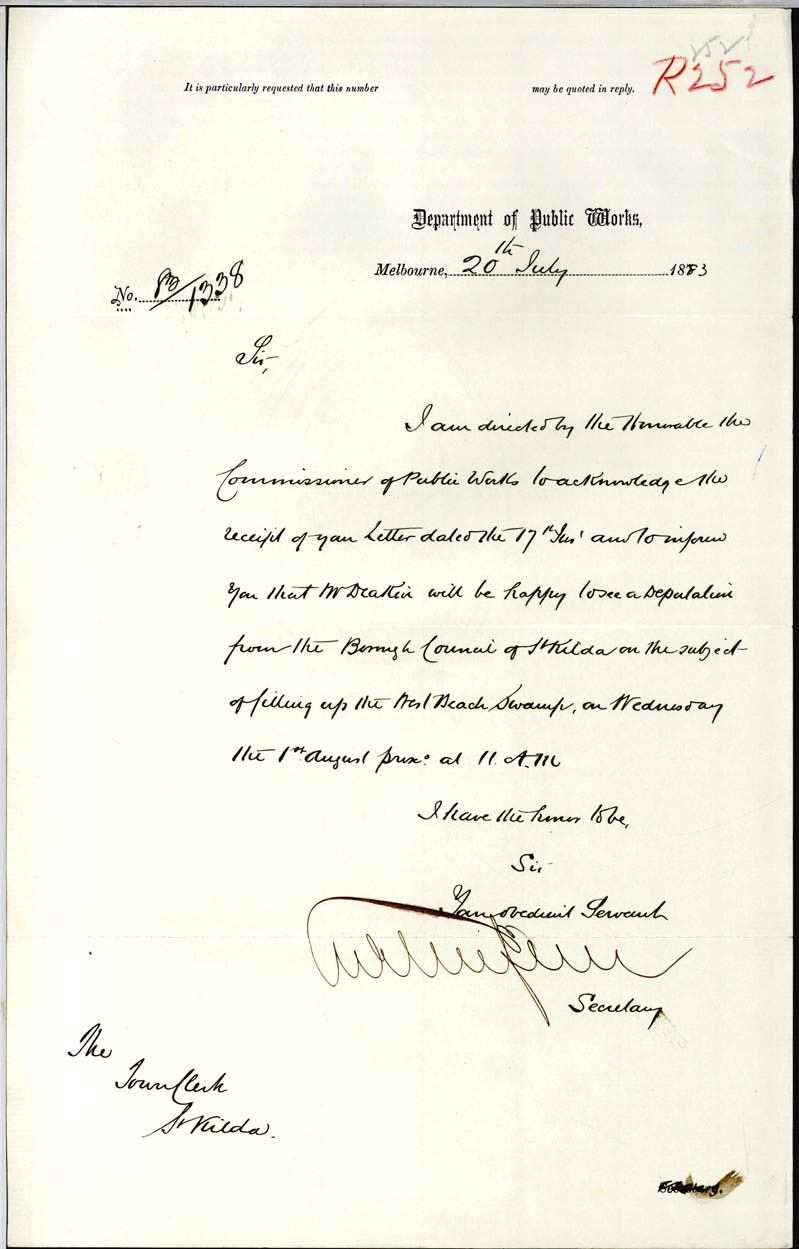 252
R252
It is particularly requested that this number may be quoted in reply.
Department of Public Works,
Melbourne, 20th July 1883
No. 83/1338
Sir,
I am directed by the Honorable the
Commissioner of Public Works to acknowledge the
receipt of your Letter dated the 17th Inst and to inform
You that Mr Deakin will be happy to see a Deputation
from the Borough Council of St Kilda on the subject
of filling up the West Beach Swamp, on Wednesday
the 1st August proxo at 11. A.M
I have the honor to be,
Sir
Your obedient Servant
Secretary
The
Town Clerk
St Kilda.